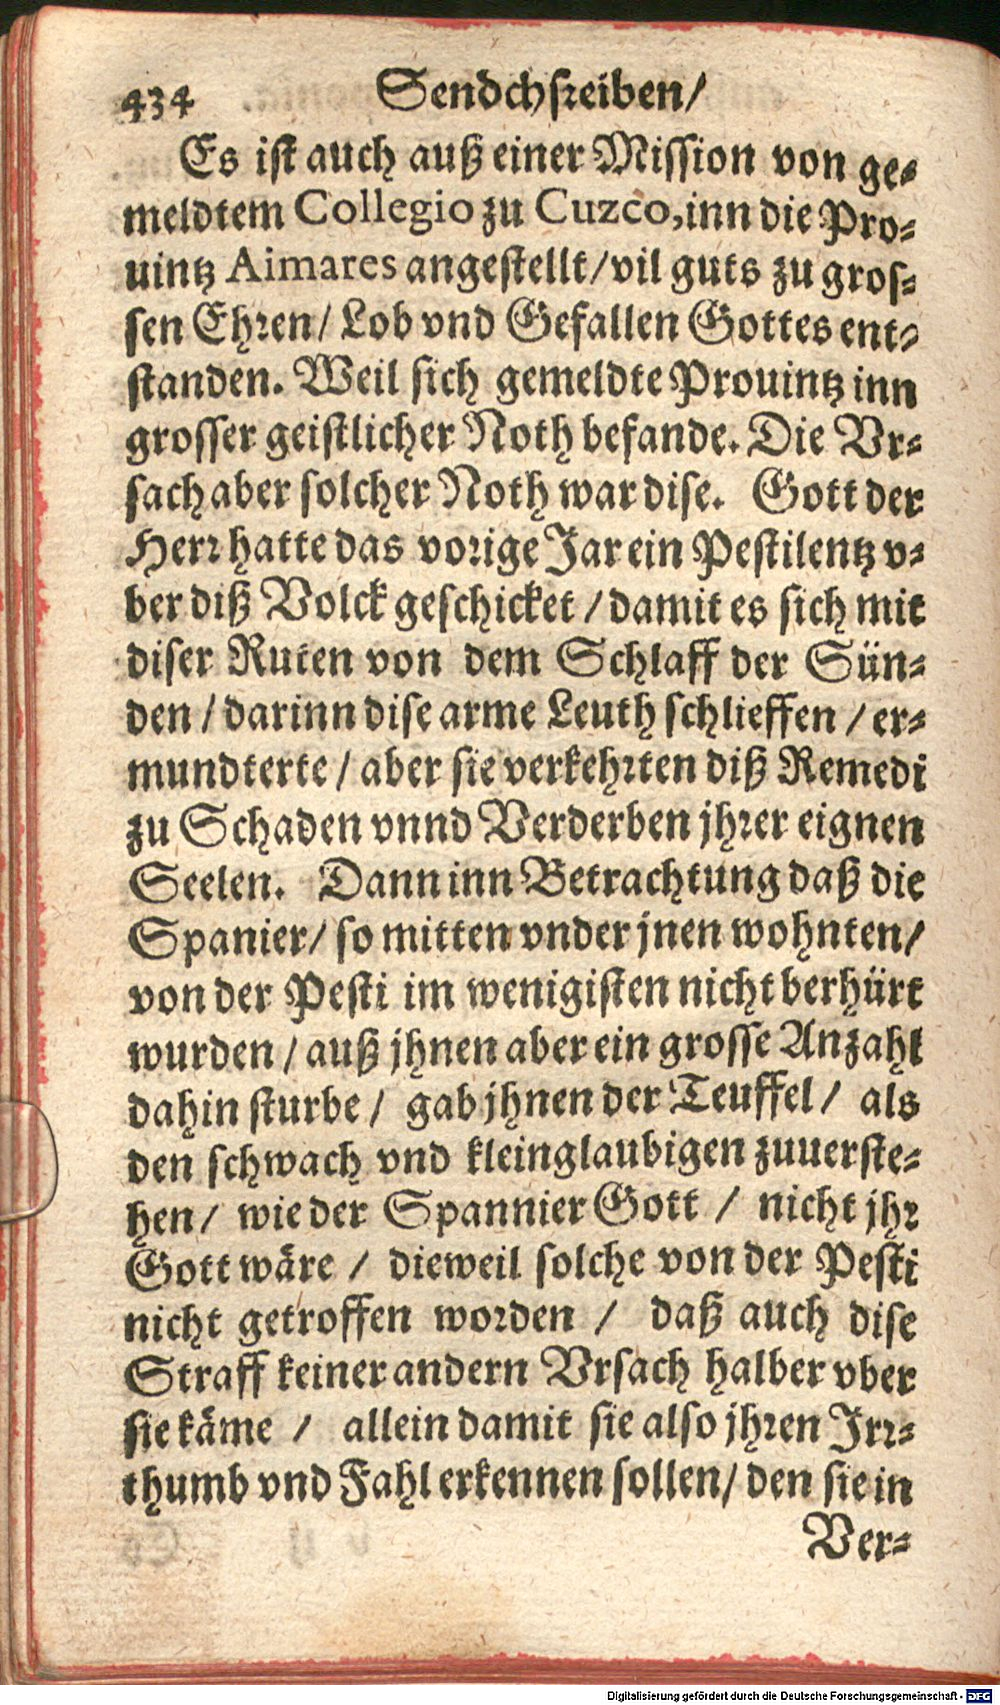 434 Sendchsreiben/
Es ist auch auß einer Mission von ge-
meldtem Collegio zu Cuzco, inn die Pro-
uintz Aimares angestellt/ vil guts zu gros-
sen Ehren/ Lob vnd Gefallen Gottes ent-
standen. Weil sich gemeldte Prouintz inn
grosser geistlicher Noth befande. Die Vr-
sach aber solcher Noth war dise. Gott der
Herr hatte das vorige Jar ein Pestilentz v-
ber diß Volck geschicket / damit es sich mit
diser Ruten von dem Schlaff der Sün-
den / darinn dise arme Leuth schlieffen / er-
mundterte / aber sie verkehrten diß Remedi
zu Schaden vnnd Verderben jhrer eignen
Seelen. Dann inn Betrachtung daß die
Spanier/ so mitten vnder jnen wohnten/
von der Pesti im wenigisten nicht berhürt
wurden / auß jhnen aber ein grosse Anzahl
dahin sturbe / gab jhnen der Teuffel / als
den schwach vnd kleinglaubigen zuuerste-
hen / wie der Spannier Gott / nicht jhr
Gott wäre / dieweil solche von der Pesti
nicht getroffen worden / daß auch dise
Straff keiner andern Vrsach halber vber
sie käme / allein damit sie also jhren Irr-
thumb vnd Fahl erkennen sollen/ den sie in
Ver-
Digitalisierung gefördert durch die Deutsche Forschungsgemeinschaft - DFG